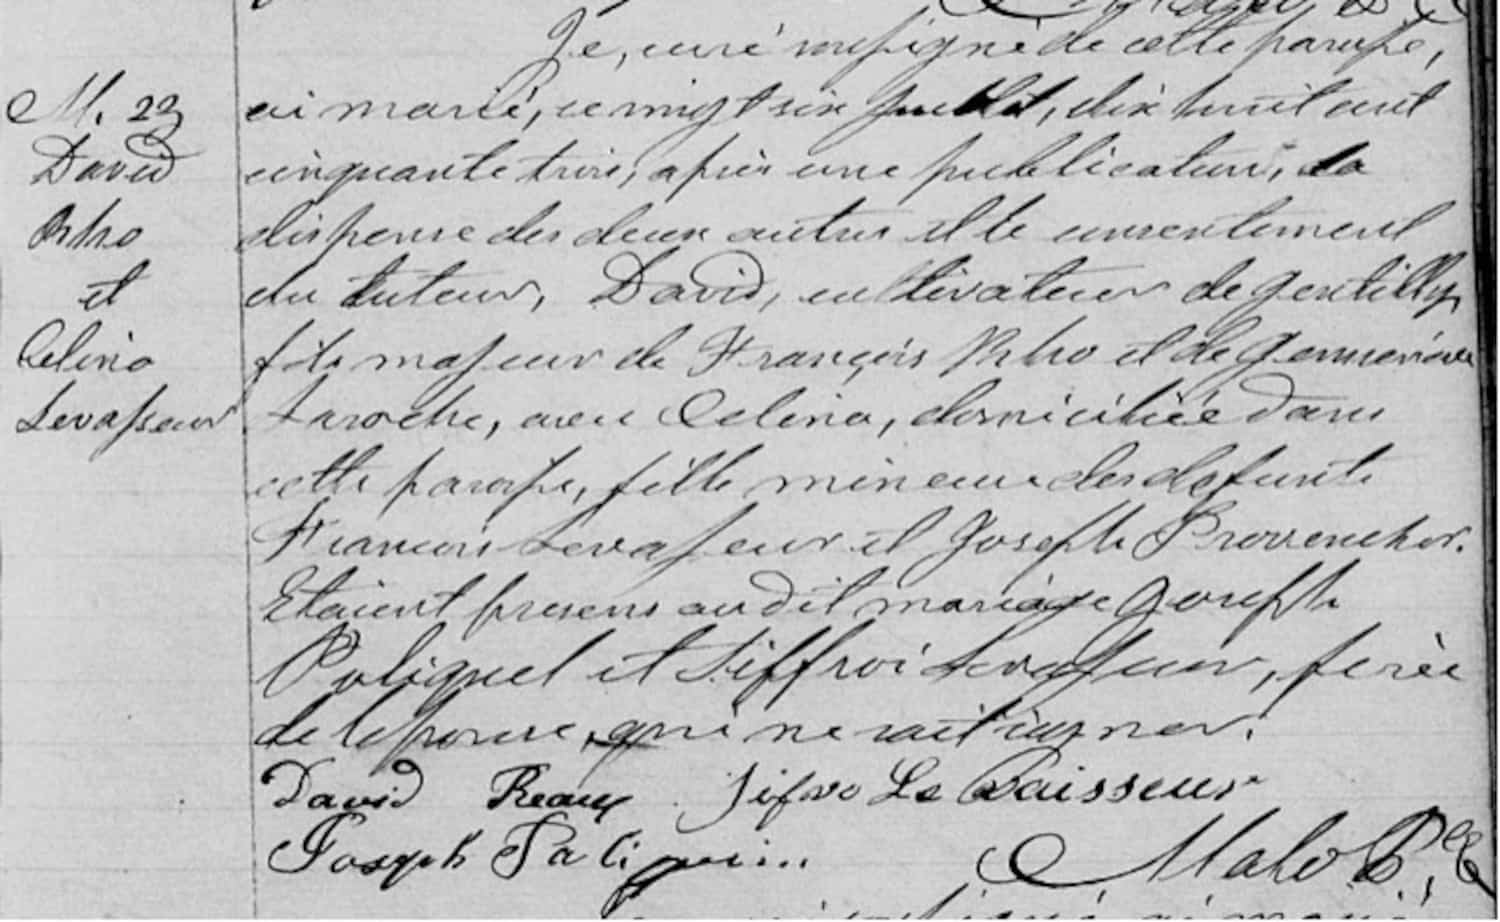 Je, curé soussigné de cette paroisse,
M. 23
David
Rho
et
Celina
Levasseur
ai marié, ce vingt six juillet, dix huit cent
cinquante trois, après une publication, la
dispense des deux autres et le consentement
du tuteur, David, cultivateur de Gentilly
fils majeur de François Rho et de Genneviève
Laroche, avec Celina, domiciliée dans
cette paroisse, fille mineure des defunts
Francois Levasseur et Joseph Provencher.
Etaient presens audit mariage Joseph
Poliquel et Siffroi Levasseur, frère
de lepouse, qui ne sait signer.
David Reaux Sifro Le Vaisseur
Joseph Paliquin..
Malo Ptre